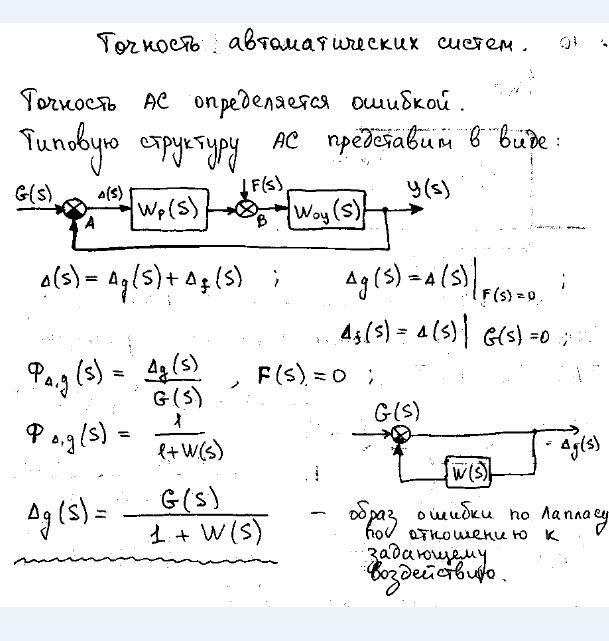 Точность автоматических систем.
Точность АС определяется ошибкой.
Типовую структуру АС представим в виде:
G(s) Δ(s) Wp(s) F(s) Wоу(s) Y(s)
A B
Δ(s) = Δg(s) + Δf(s) ; Δg(s) = Δ(s)|F(s)=0 ;
Δf(s) = Δ(s)| G(s)=0 ;
ΦΔ,g(s) = Δg(s)/G(s) , F(s) = 0 ;
G(s)
ΦΔ,g(s) = 1/1+W(s)
Δg(s)
W(s)
Δg(s) = G(s)/1 + W(s) – образ ошибки по Лапласу
по отношению к
задающему
воздействию.